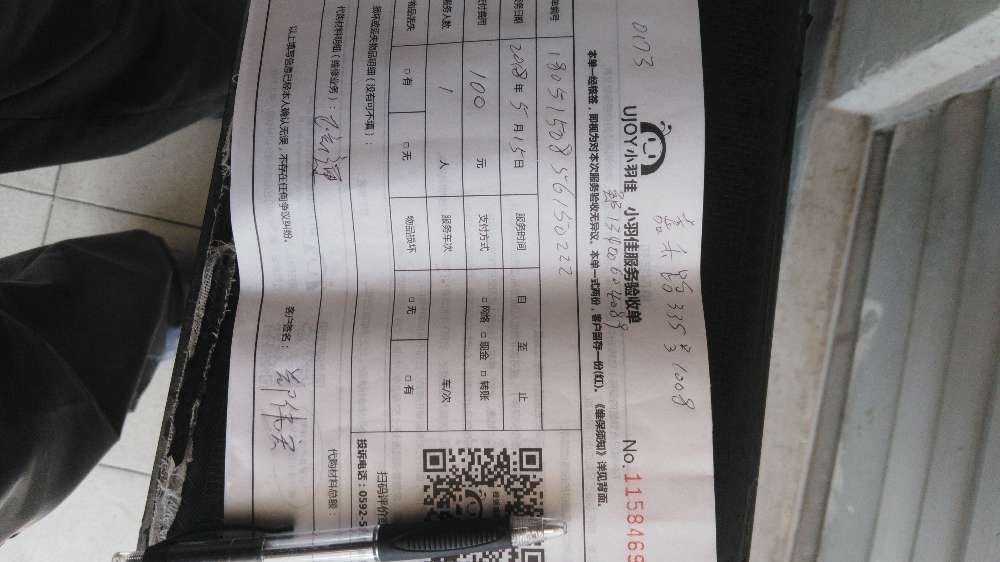 0173
嘉禾路335#
31008
UJOY小羽佳 小羽佳服务验收单
No. 1158469
本单一经核签，即视为对本次服务验收无异议。本单一式两份，客户留存一份(红)。《维保须知》详见背面。
单编号 180515085615150222
务日期 2018年5月15日 服务时间 日 至 止
支付费用 100 元 支付方式 □网络 □现金 □转账
服务人数 1 人 服务车次 车/次
物品遗失 □有 □无 物品损坏 □无 □有
损坏或丢失物品明细（没有可不填）：
代购材料明细（维修业务）：
代购材料总额：
以上填写信息已经本人确认无误，不存在任何争议纠纷。 客户签名：
扫码评价
投诉电话：0592-5